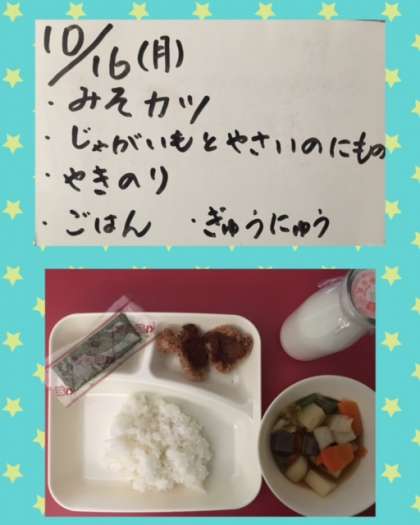 10/16(月)
・みそカツ
・じゃがいもとやさいのにもの
・やきのり
・ごはん ・ぎゅうにゅう